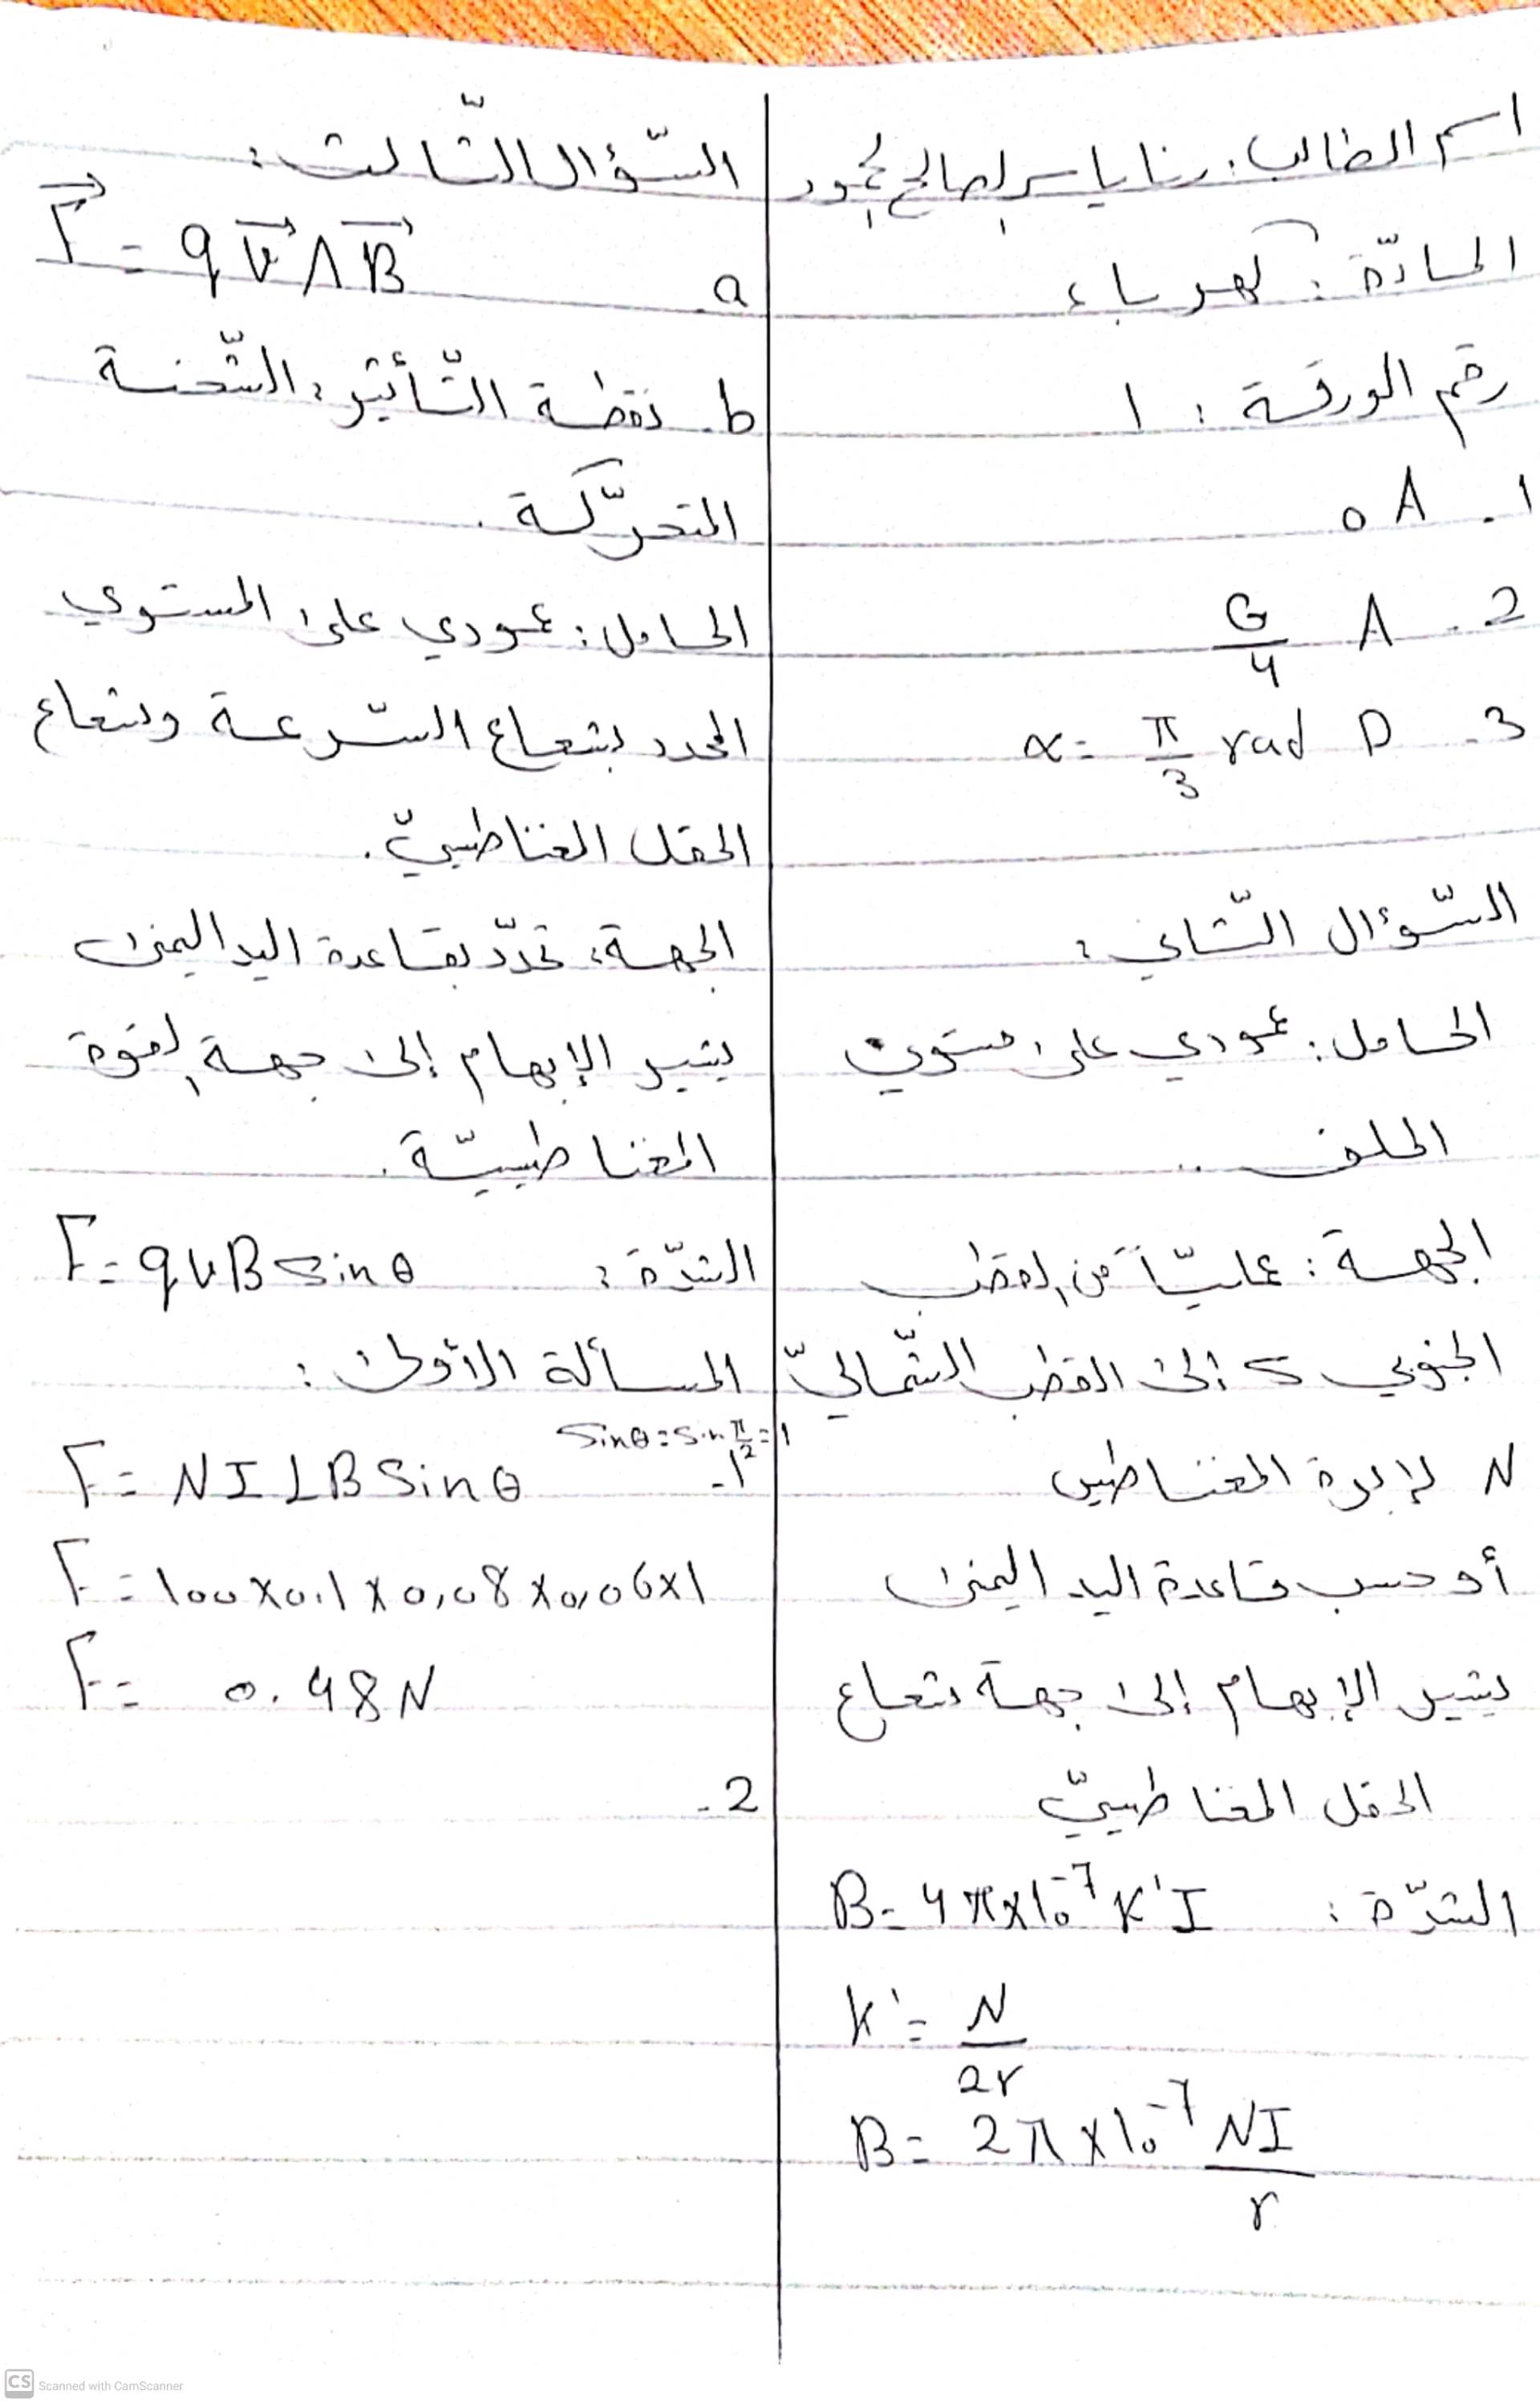 اسم الطالب: رنا ياسر صالح محمود
المادّة: كهرباء
رقم الورقة: 1
1. A 0
2. A G/4
3. D α = π/3 rad
السّؤال الثّاني:
الحامل: عمودي على مستوي
الملف ..
الجهة: عمليّاً من القطب
الجنوبي S إلى القطب الشّماليّ
N لإبرة المغناطيس
أو حسب قاعدة اليد اليمنى
يشير الإبهام إلى جهة شعاع
الحقل المغناطيسيّ
الشّدّة: B = 4π×10⁻⁷ K'I
K' = N/2r
B = 2π×10⁻⁷ NI/r
السّؤال الثّالث:
a. F⃗ = q v⃗ Λ B⃗
b. نقطة التّأثير: الشّحنة
المتحرّكة.
الحامل: عمودي على المستوي
المحدد بشعاع السّرعة وشعاع
الحقل المغناطيسيّ.
الجهة: تحدّد بقاعدة اليد اليمنى
يشير الإبهام إلى جهة القوة
المغناطيسيّة.
الشّدّة: F = qvB sinθ
المسألة الأولى:
sinθ = sin π/2 = 1
1- F = NILB sinθ
F = 100×0.1×0,08×0,06×1
F = 0.48N
2-
CS Scanned with CamScanner